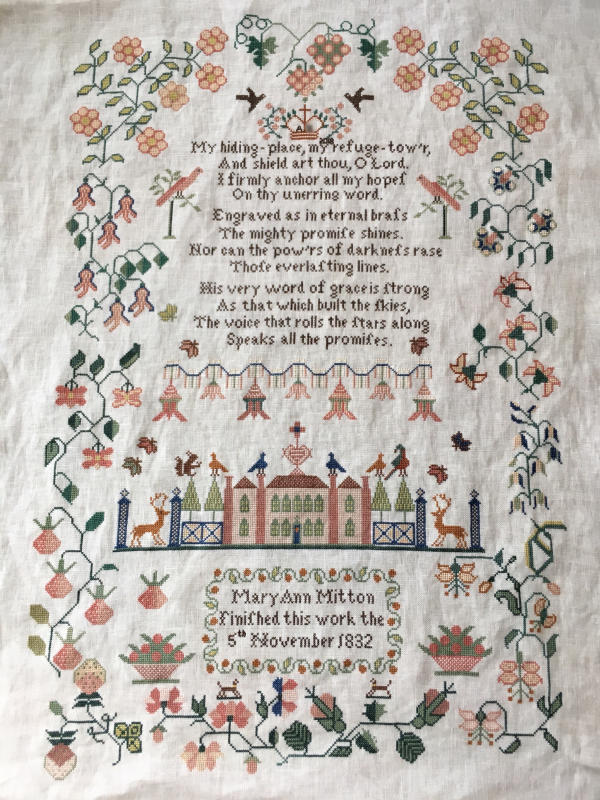 My hiding-place, my refuge-tow'r,
And shield art thou, O Lord.
I firmly anchor all my hopeſ
On thy unerring word.
Engraved as in eternal braſs
The mighty promiſe shines.
Nor can the pow'rs of darkneſs rase
Thoſe everlaſting lines.
His very word of grace is ſtrong
As that which built the ſkies,
The voice that rolls the ſtars along
Speaks all the promiſes.
Mary Ann Mitton
Finiſhed this work the
5th November 1832